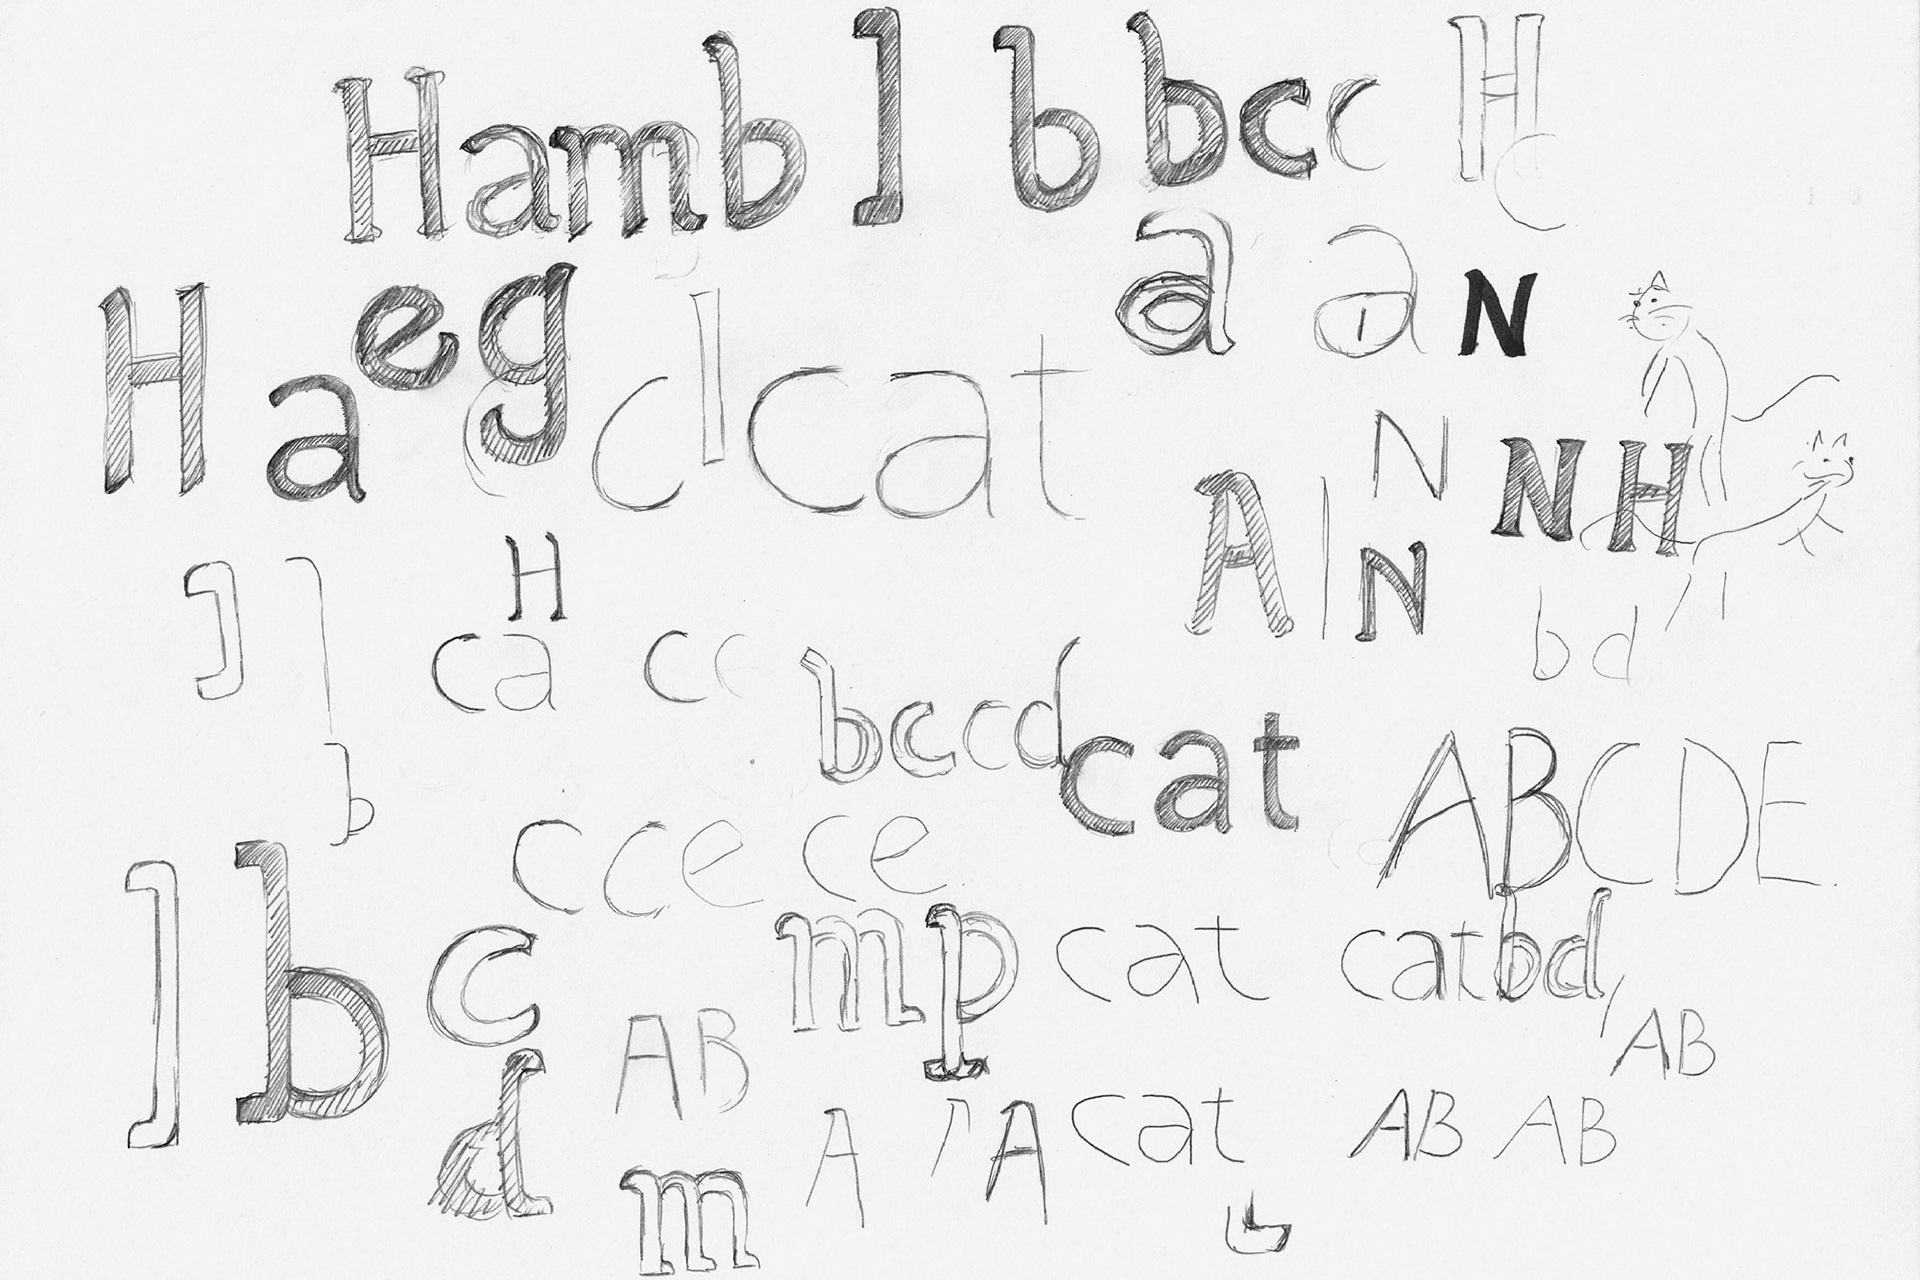 Hamb b bcc H
c
a a N
H a e g c l cat
N
N H
A N
H
ca cc
bccd
b d
cat ABCDE
cce ce
b c m p cat catbd,
AB
AB
d
m
A A cat AB AB